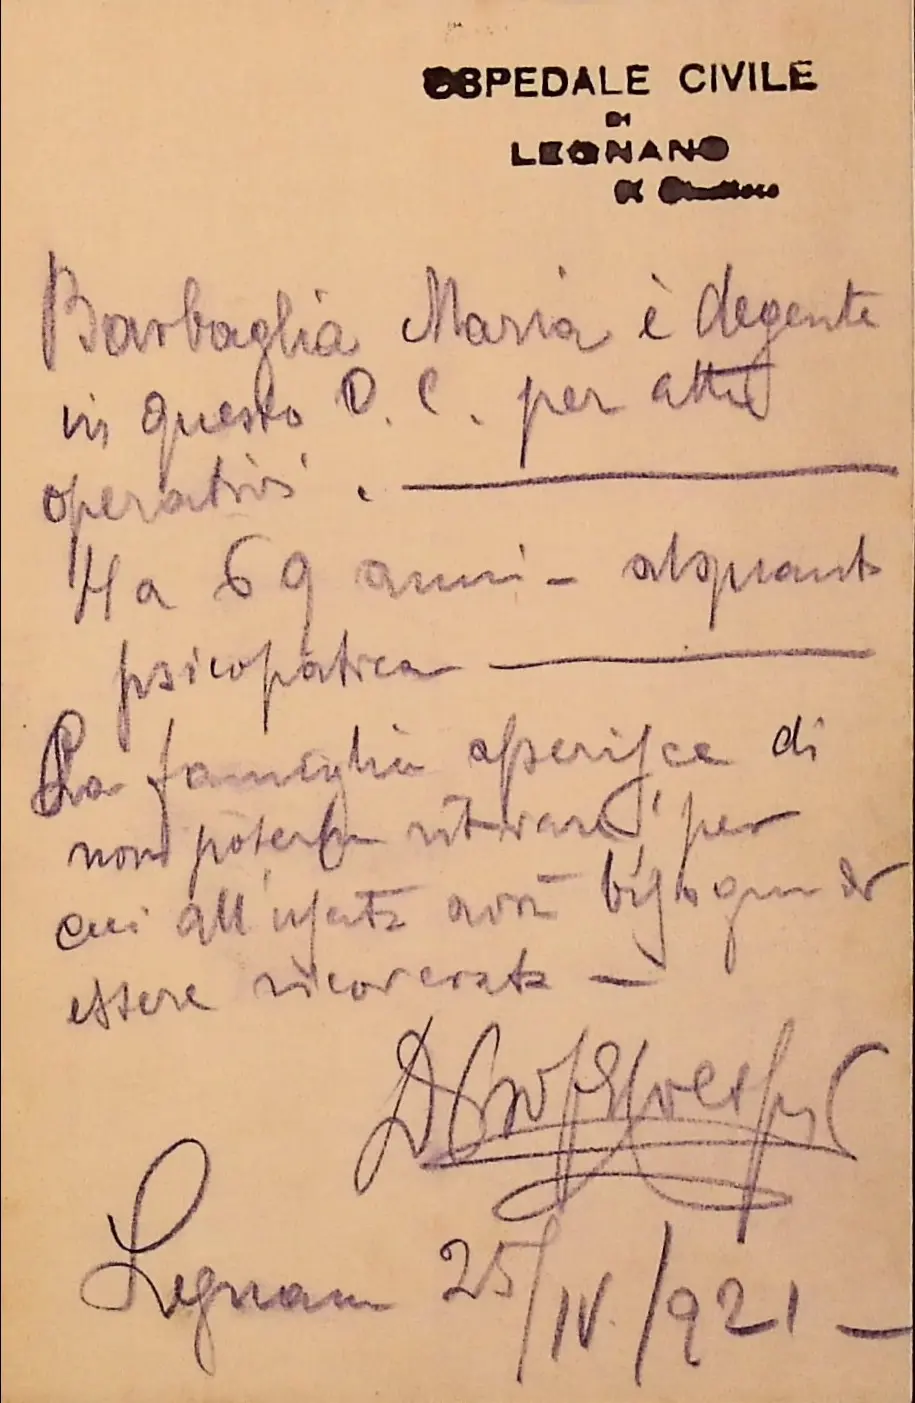 OSPEDALE CIVILE
DI
LEGNANO
Il Direttore
Barbaglia Maria è degente
in questo O. C. per atti
operativi .
Ha 69 anni - alquanto
psicopatica
La famiglia asserisce di
non poterla ritirare per
cui all'uscita avrà bisogno di
essere ricoverata -
Legnano 25/IV/921 -